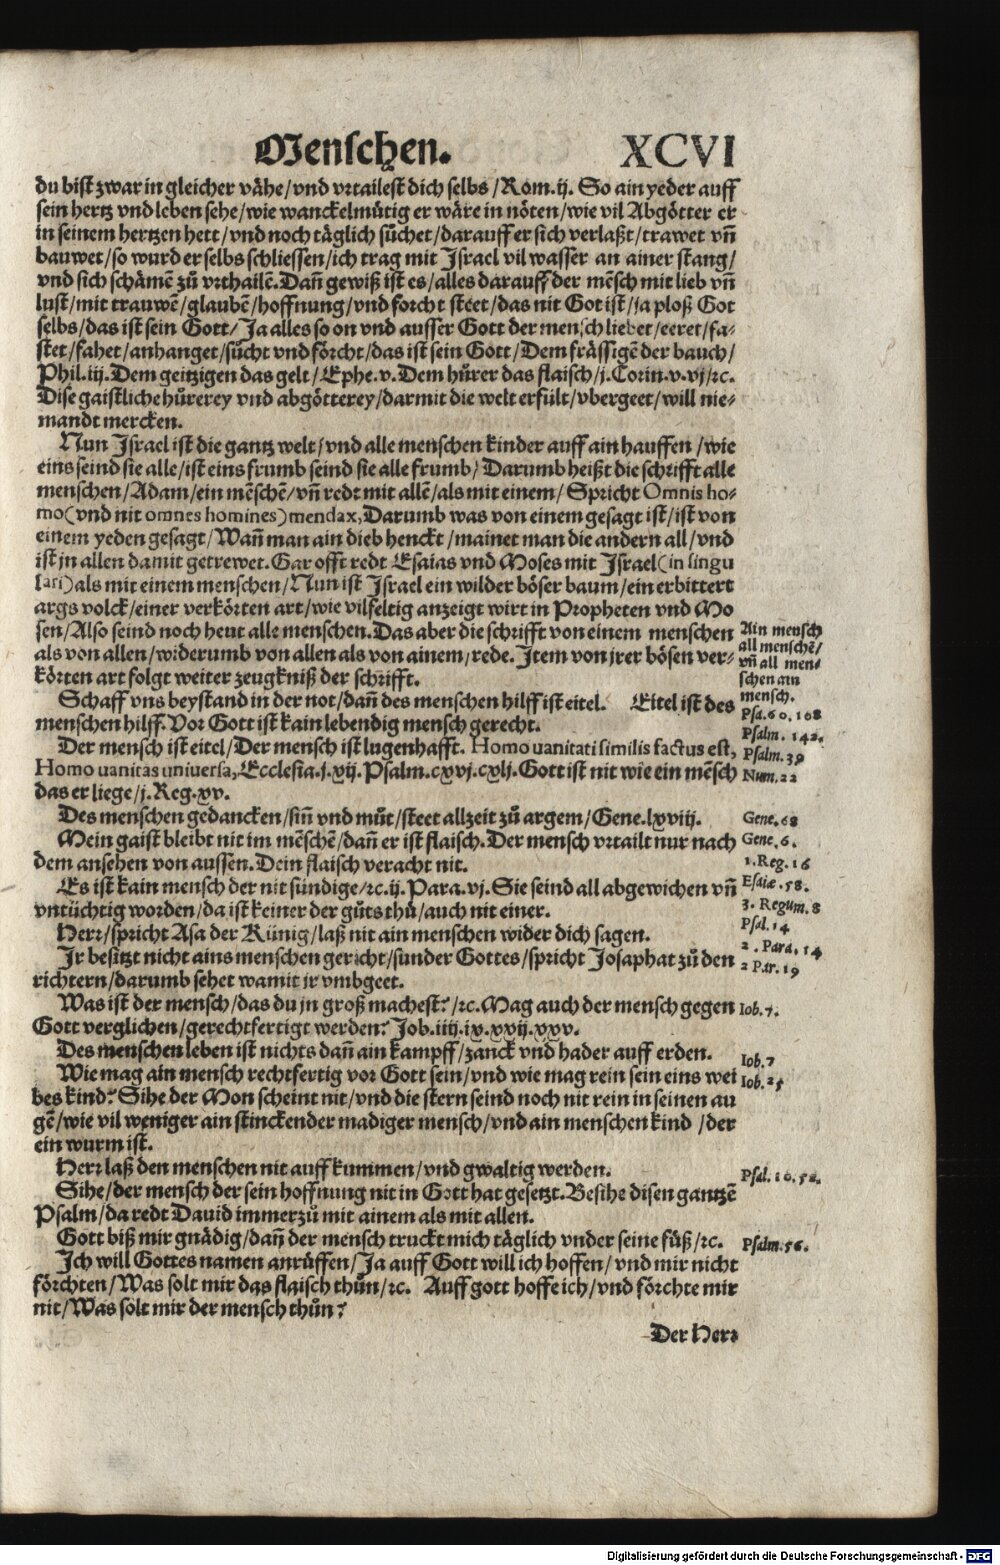 Menschen. XCVI
du bist zwar in gleicher vähe/vnd vrtailest dich selbs/Rom.ij. So ain yeder auff
sein hertz vnd leben sehe/wie wanckelmütig er wäre in nöten/wie vil Abgötter er
in seinem hertzen hett/vnd noch täglich sůchet/darauff er sich verlaßt/trawet vñ
bauwet/so wurd er selbs schliessen/ich trag mit Israel vil wasser an ainer stang/
vnd sich schämẽ zů vrthailẽ. Dañ gewiß ist es/alles darauff der mẽsch mit lieb vñ
lust/mit trauwẽ/glaubẽ/hoffnung/vnd forcht steet/das nit Got ist/ja ploß Got
selbs/das ist sein Gott/Ja alles so on vnd ausser Gott der mensch liebet/eeret/fa-
stet/fahet/anhanget/sůcht vnd förcht/das ist sein Gott/Dem frässigẽ der bauch/
Phil.iij. Dem geitzigen das gelt/Ephe.v. Dem hůrer das flaisch/j.Corin.v.vj/ꝛc.
Dise gaistliche hůrerey vnd abgötterey/darmit die welt erfült/vbergeet/will nie-
mandt mercken.
Nun Israel ist die gantz welt/vnd alle menschen kinder auff ain hauffen/wie
eins seind sie alle/ist eins frumb seind sie alle frumb/Darumb heißt die schrifft alle
menschen/Adam/ein mẽschẽ/vñ redt mit allẽ/als mit einem/Spricht Omnis ho-
mo(vnd nit omnes homines)mendax, Darumb was von einem gesagt ist/ist von
einem yeden gesagt/Wañ man ain dieb henckt/mainet man die andern all/vnd
ist jn allen damit getrewet. Gar offt redt Esaias vnd Moses mit Israel(in singu
lari)als mit einem menschen/Nun ist Israel ein wilder böser baum/ein erbittert
args volck/einer verkörten art/wie vilfeltig anzeigt wirt in Propheten vnd Mo
sen/Also seind noch heut alle menschen. Das aber die schrifft von einem menschen
als von allen/widerumb von allen als von ainem/rede. Item von jrer bösen ver-
körten art folgt weiter zeugkniß der schrifft.
Ain mensch
all menschẽ/
vñ all men-
schen ain
mensch.
Schaff vns beystand in der not/dañ des menschen hilff ist eitel. Eitel ist des
menschen hilff. Vor Gott ist kain lebendig mensch gerecht.
Psa.60.108
Psalm. 142.
Der mensch ist eitel/Der mensch ist lugenhafft. Homo uanitati similis factus est,
Homo uanitas uniuersa, Ecclesia.j.vij. Psalm.cxvj.cxlj. Gott ist nit wie ein mẽsch
das er liege/j.Reg.xv.
Psalm.39
Num.22
Des menschen gedancken/siñ vnd můt/steet allzeit zů argem/Gene.lxviij.
Gene.68
Mein gaist bleibt nit im mẽschẽ/dañ er ist flaisch. Der mensch vrtailt nur nach
dem ansehen von aussen. Dein flaisch veracht nit.
Gene.6.
1.Reg.16
Esaiæ.58.
Es ist kain mensch der nit sündige/ꝛc.ij.Para.vj. Sie seind all abgewichen vñ
vntüchtig worden/da ist keiner der gůts thů/auch nit einer.
3.Regum.8
Psal.14
Herr/spricht Asa der Künig/laß nit ain menschen wider dich sagen.
2.Para.14
Ir besitzt nicht ains menschen gericht/sunder Gottes/spricht Josaphat zů den
richtern/darumb sehet wamit jr vmbgeet.
2 Par.19
Was ist der mensch/das du jn groß machest?/ꝛc. Mag auch der mensch gegen
Gott verglichen/gerechtfertigt werden? Job.iiij.ix.xxij.xxv.
Iob.7.
Des menschen leben ist nichts dañ ain kampff/zanck vnd hader auff erden.
Iob.7
Wie mag ain mensch rechtfertig vor Gott sein/vnd wie mag rein sein eins wei
bes kind? Sihe der Mon scheint nit/vnd die stern seind noch nit rein in seinen au
gẽ/wie vil weniger ain stinckender madiger mensch/vnd ain menschen kind/der
ein wurm ist.
Iob.25
Herr laß den menschen nit auff kummen/vnd gwaltig werden.
Sihe/der mensch der sein hoffnung nit in Gott hat gesetzt. Besihe disen gantzẽ
Psalm/da redt Dauid immerzů mit ainem als mit allen.
Psal.10.52.
Gott biß mir gnädig/dañ der mensch truckt mich täglich vnder seine füß/ꝛc.
Psalm.56.
Ich will Gottes namen anrüffen/Ja auff Gott will ich hoffen/vnd mir nicht
förchten/Was solt mir das flaisch thůn/ꝛc. Auff gott hoffe ich/vnd förchte mir
nit/Was solt mir der mensch thůn?
Der Herr
Digitalisierung gefördert durch die Deutsche Forschungsgemeinschaft - DFG